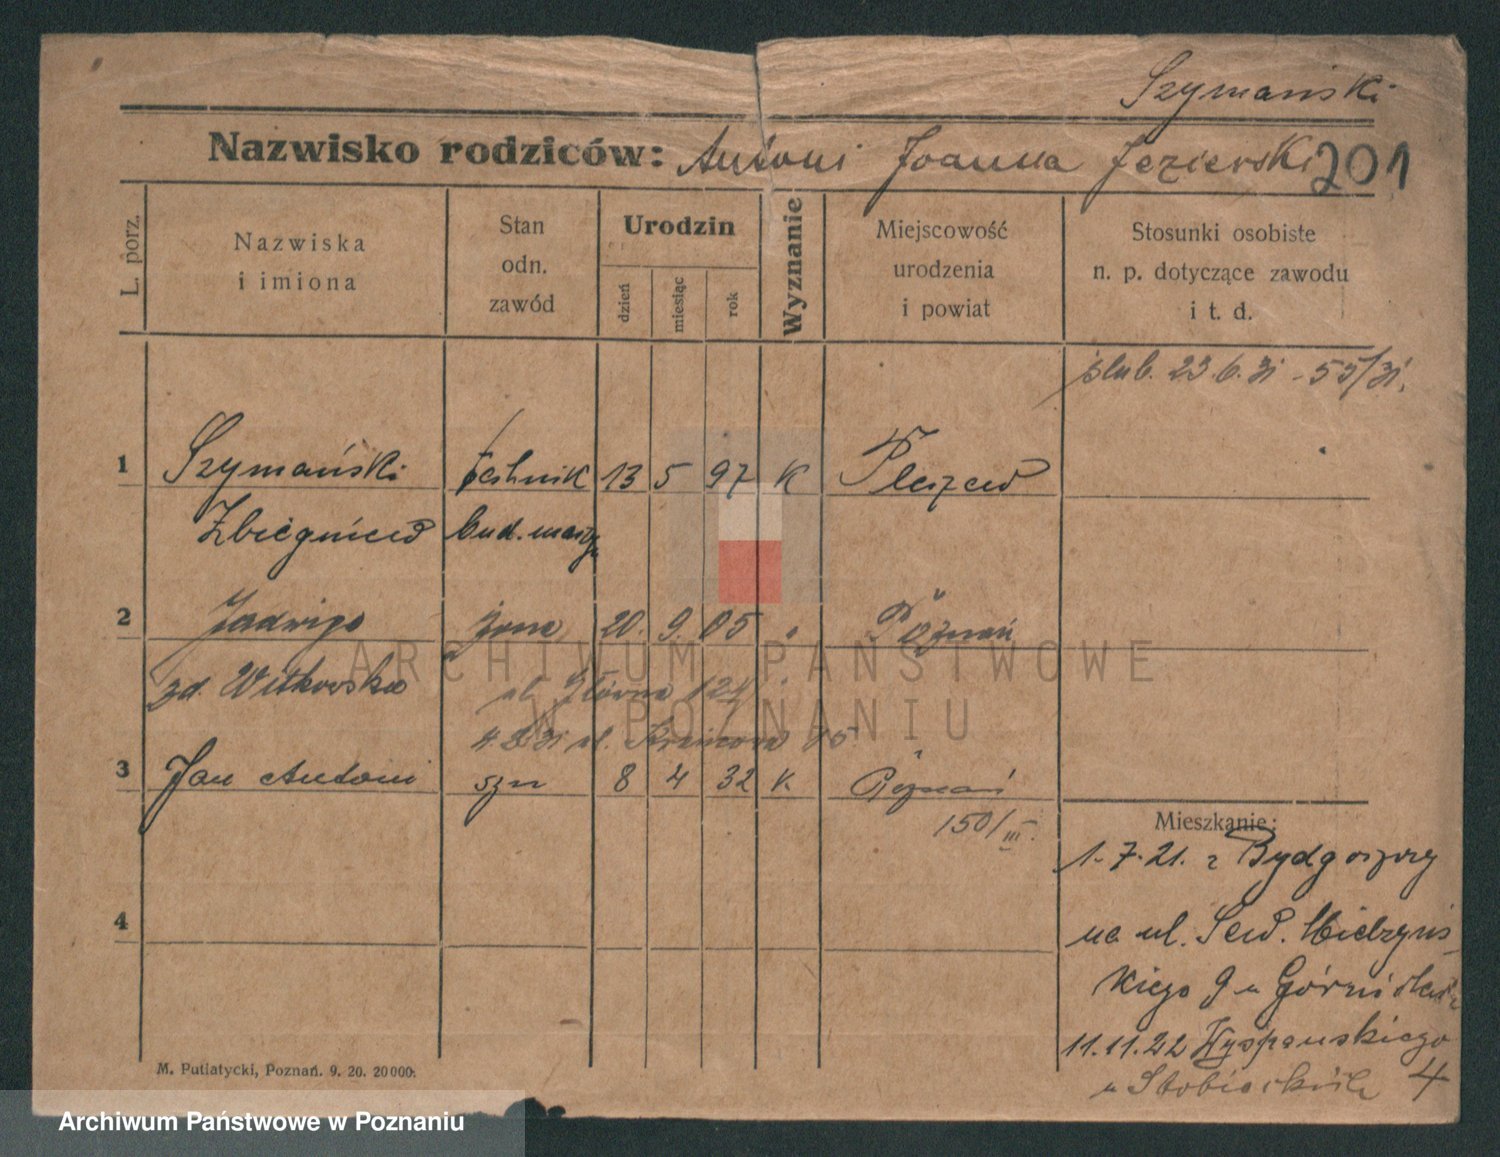 Szymański
Nazwisko rodziców: Antoni Joanna Jezierski 201
L. porz.
Nazwiska
i imiona
Stan
odn.
zawód
Urodzin
dzień
miesiąc
rok
Wyznanie
Miejscowość
urodzenia
i powiat
Stosunki osobiste
n. p. dotyczące zawodu
i t. d.
ślub. 23.6.31 - 55/31.
1 Szymański technik 13 5 97 K Pleszew
Zbigniew bud. maszyn
2 Jadwiga żona 20. 9. 05 " Poznań
zd. Witkowska ul. Główna 124
ul.
3 Jan Antoni syn 8 4 32 K. Poznań
150/III.
Mieszkanie:
1.7.21. z Bydgoszczy
na ul. Sew. Mielżyńs
kiego 9 u
4
11.11.22 Wyspiańskiego
u 4
M. Putiatycki, Poznań. 9. 20. 20000.
ARCHIWUM PAŃSTWOWE
W POZNANIU
Archiwum Państwowe w Poznaniu